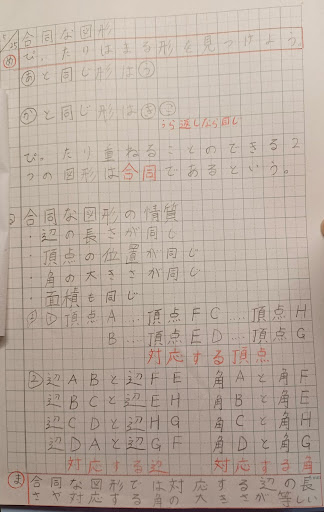 5/25 合同な図形
め ぴったりはまる形を見つけよう。
あと同じ形はう
かと同じ形はきこ
うら返しなら同じ
ぴったり重ねることのできる2
つの図形は合同であるという。
合同な図形の情質
・辺の長さが同じ
・頂点の位置が同じ
・角の大きさが同じ
・面積も同じ
① 頂点A…頂点F C…頂点H
B…頂点E D…頂点G
対応する頂点
② 辺ABと辺FE 角Aと角F
辺BCと辺EH 角Bと角E
辺CDと辺HG 角Cと角H
辺DAと辺GF 角Dと角G
対応する辺 対応する角
ま 合同な図形では対応する辺の長
さや対応する角の大きさが等しい